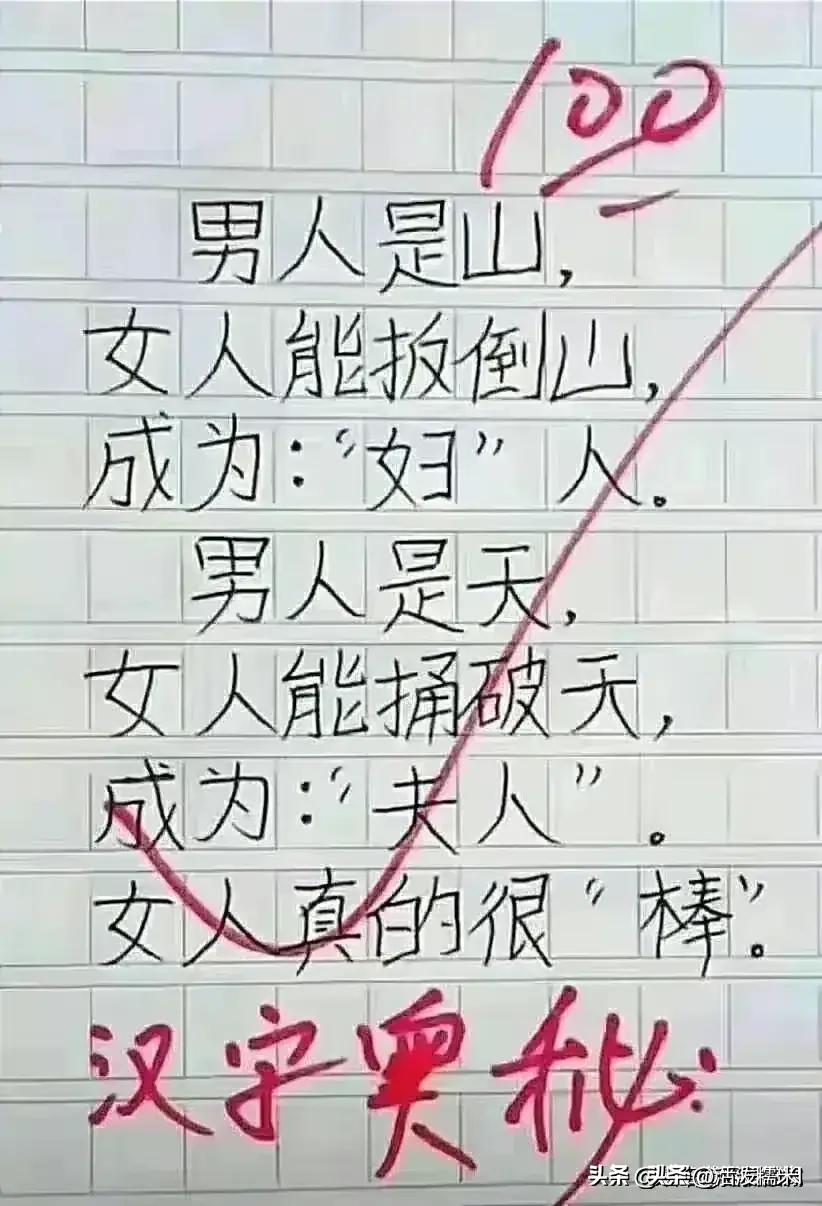 100
男人是山,
女人能扳倒山,
成为:“妇”人。
男人是天,
女人能捅破天,
成为:“夫人”。
女人真的很“棒”。
汉字奥秘
头条 @头条 @活泼糯米